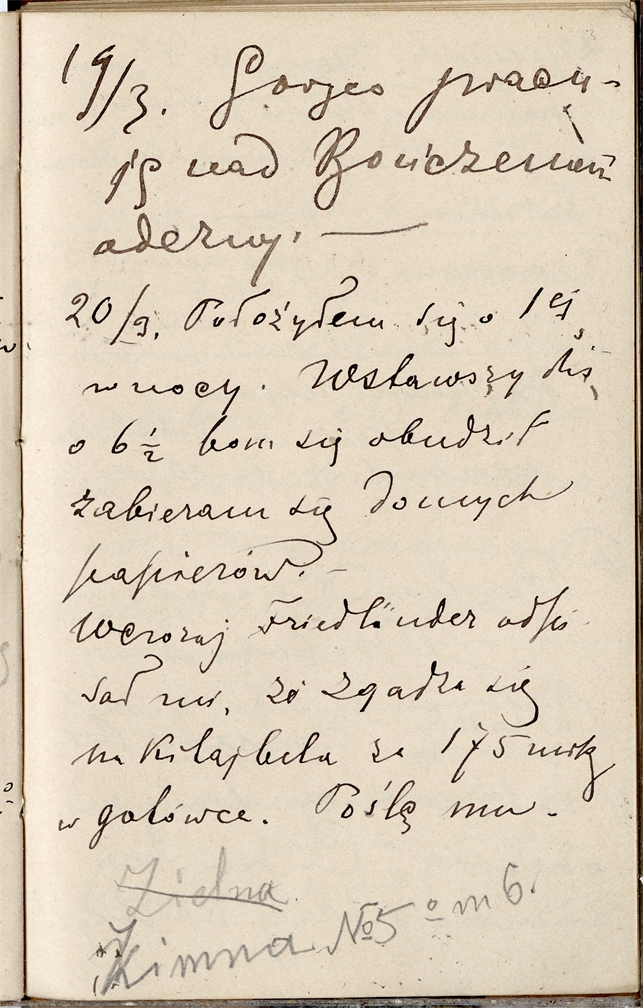 19/3. Gorjeo pracu-
ję nad Bończenem
aderny. —
20/3. Położyłem się o 1ej
w nocy. Wstawszy dziś
o 6 ½ bom się obudził
zabieram się do mych
papierów. —
Wczoraj Friedländer odpi
sał mi, że zgadza się
na Kitajbela za 175 mrk
w gotówce. Poślę mu.
Zielna
Zimna № 5 o m 6.